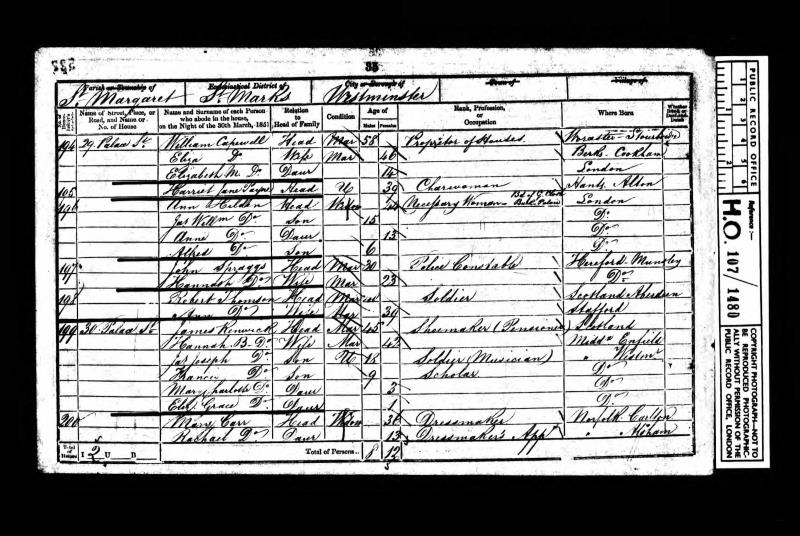 33
Parish or Township of Ecclesiastical District of City or Borough of Town of Village of
St. Margaret St. Marks Westminster
Name of Street, Place, or Road, and Name or No. of House
Name and Surname of each Person who abode in the house, on the Night of the 30th March, 1851
Relation to Head of Family
Condition
Age of Males Females
Rank, Profession, or Occupation
Where Born
Whether Blind, or Deaf-and-Dumb
194 29 Palace St William Capewell Head Mar 58 Propritor of Houses
Eliza Do Wife Mar 46 Berks. Cookham
Elizabeth M. Do Daur 14 London
195 Harriet Jane Payne Head U 39 Charwoman Hants Alton
196 Ann Hilden Head Widow Necessary Woman London
Jas Willm Do Son 15 Do
Anne Do Daur 13 Do
Alfred Do Son 6 Do
197 John Spraggs Head Mar 30 Police Constable Hereford Munsley
Hannah Do Wife Mar 23 Do
198 Robert Thomson Head Mar Soldier Scotland Aberdeen
Ann Do Wife Mar 39 Stafford
199 30 Palace St James Renwick Head Mar 45 Shoemaker (Pensioner) Scotland
Hannah B. Do Wife Mar 42 Middx Enfield
Jas Joseph Do Son U 18 Soldier (Musician) " Westmr
Francis Do Son 9 Scholar Do
Mary Charlotte Do Daur 3 Do
Eliz. Grace Do Daur 1 Do
200 Mary Carr Head Widow 36 Dressmaker Norfolk Carlton
Rachael Do Daur 13 Dressmaker's App "
Total of Houses I 2 U B Total of Persons... 8 12
PUBLIC RECORD OFFICE
1 2 3 4 5 6
Reference:-
H.O. 107/1480
COPYRIGHT PHOTOGRAPH—NOT TO BE REPRODUCED PHOTOGRAPHICALLY WITHOUT PERMISSION OF THE PUBLIC RECORD OFFICE, LONDON